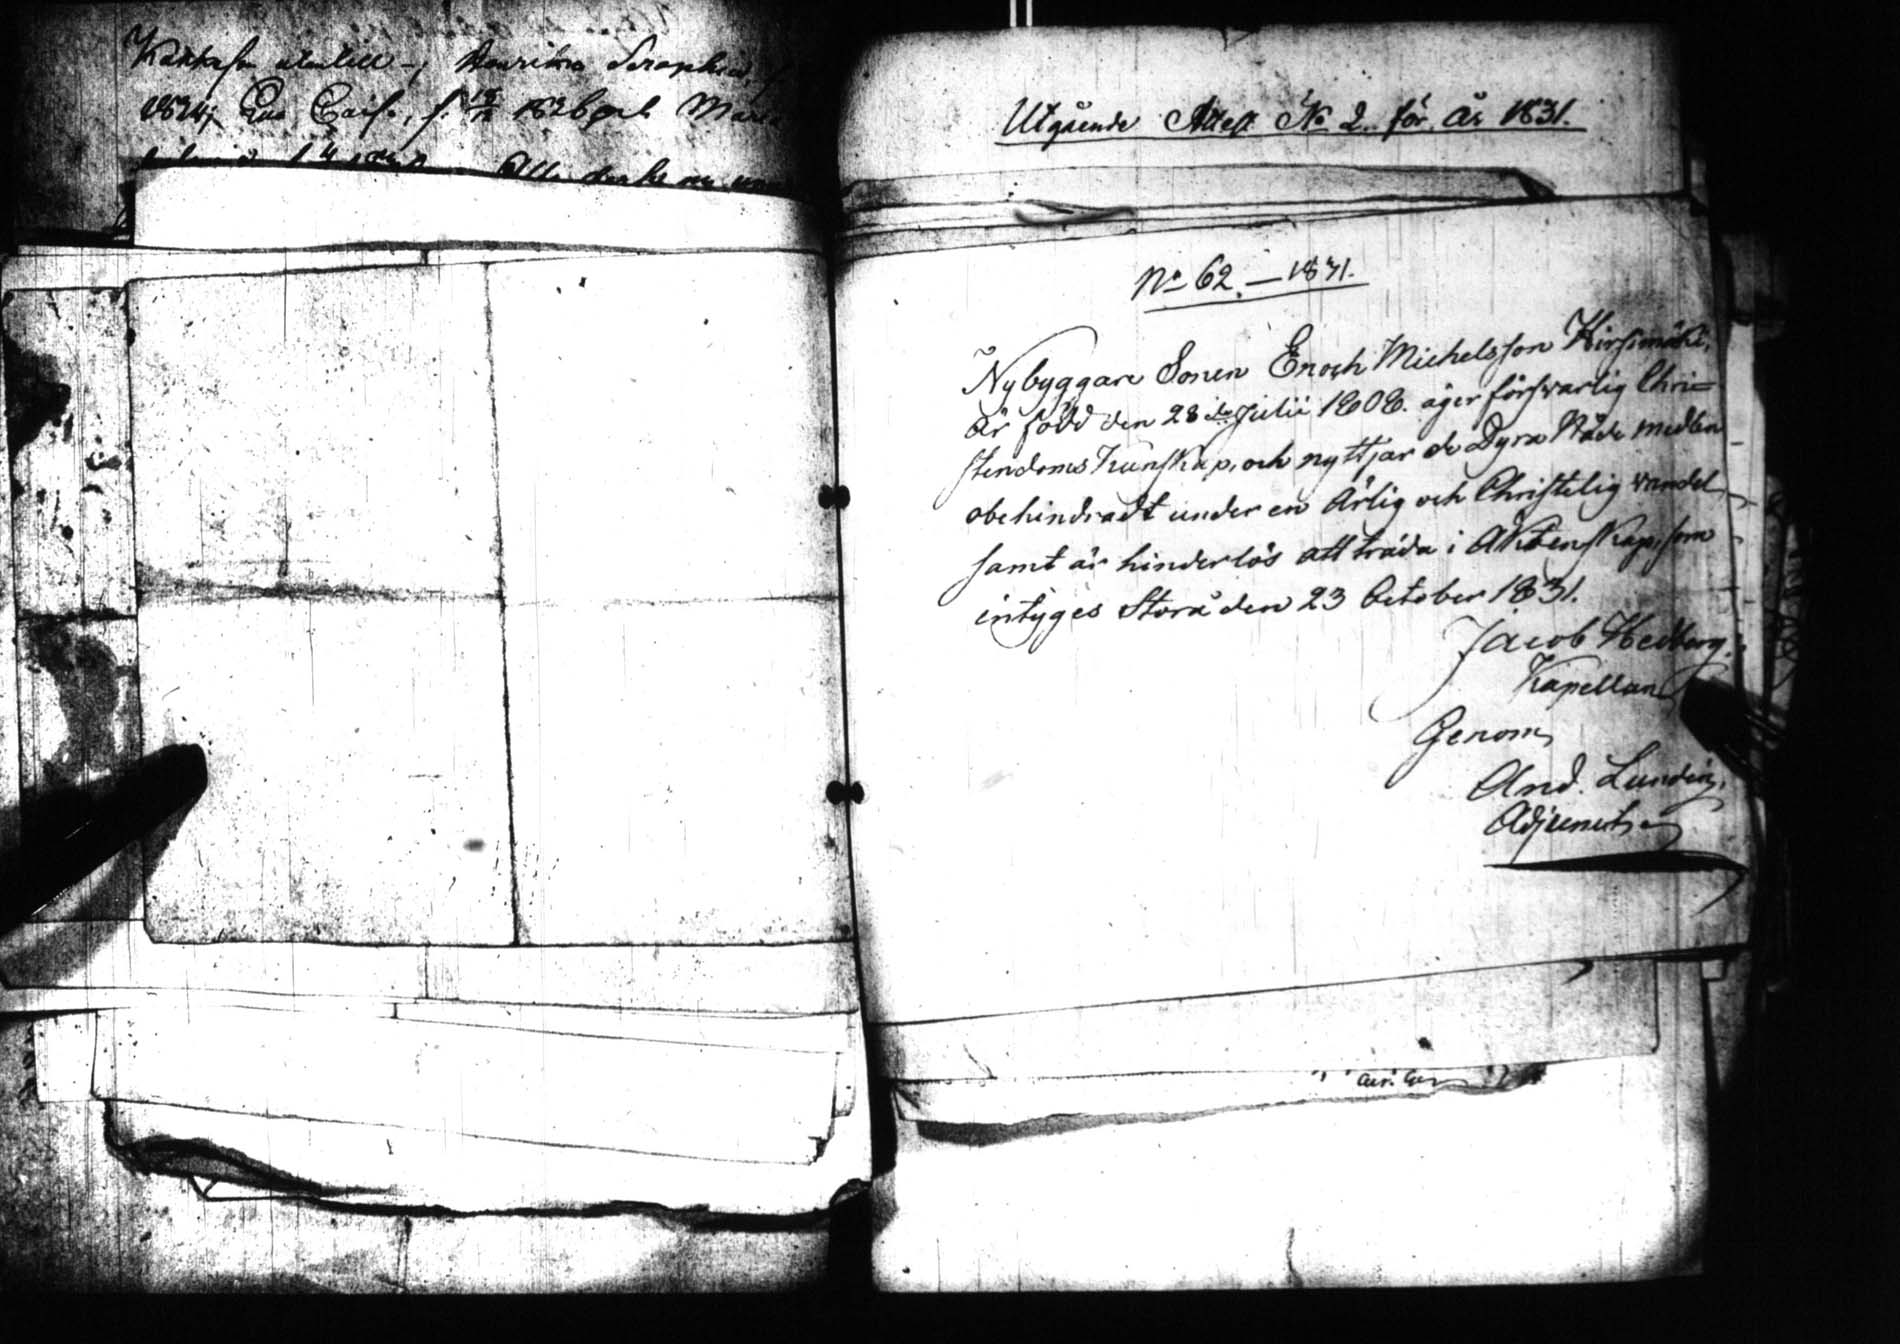 Henrika Seraphia, f.
1824; Eva Cajs., f. 18/12 1826 och Maria
Utgående Attest No 2. för År 1831.
No 62. — 1831.
Nybyggare Sonen Enoch Michelsson Hirsimäki,
är född den 28de Julii 1808. äger försvarlig Chri-
stendoms Kunskap, och nyttjar de Dyra Nåde medlen
obehindradt under en Ärlig och Christelig vandel
samt är hinderlös att träda i Äktenskap, som
intyges Storå den 23 October 1831.
Jacob Hedberg.
Kapellan
Genom
And. Lundin,
Adjunct